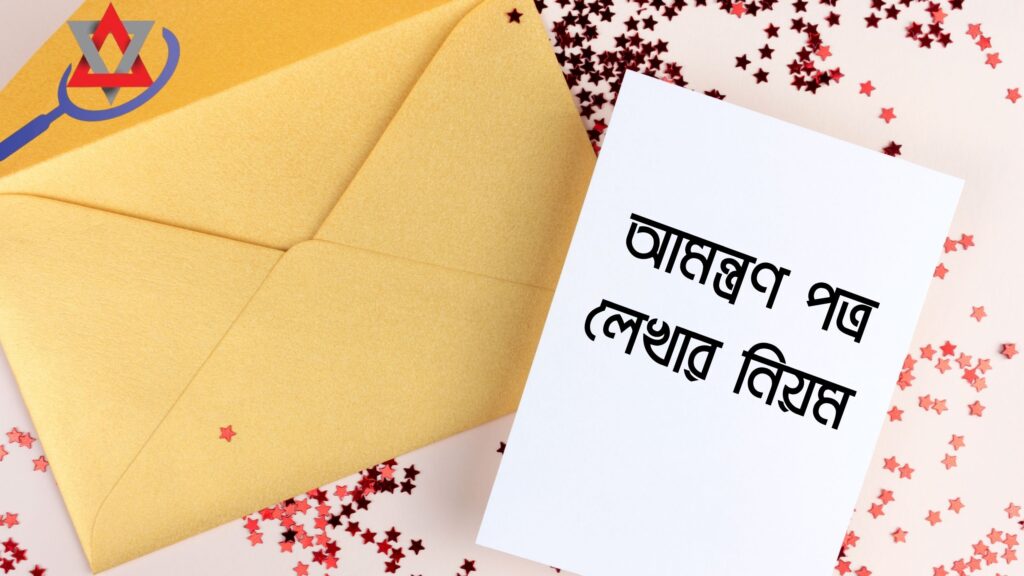 আমন্ত্রণ পত্র
লেখার নিয়ম